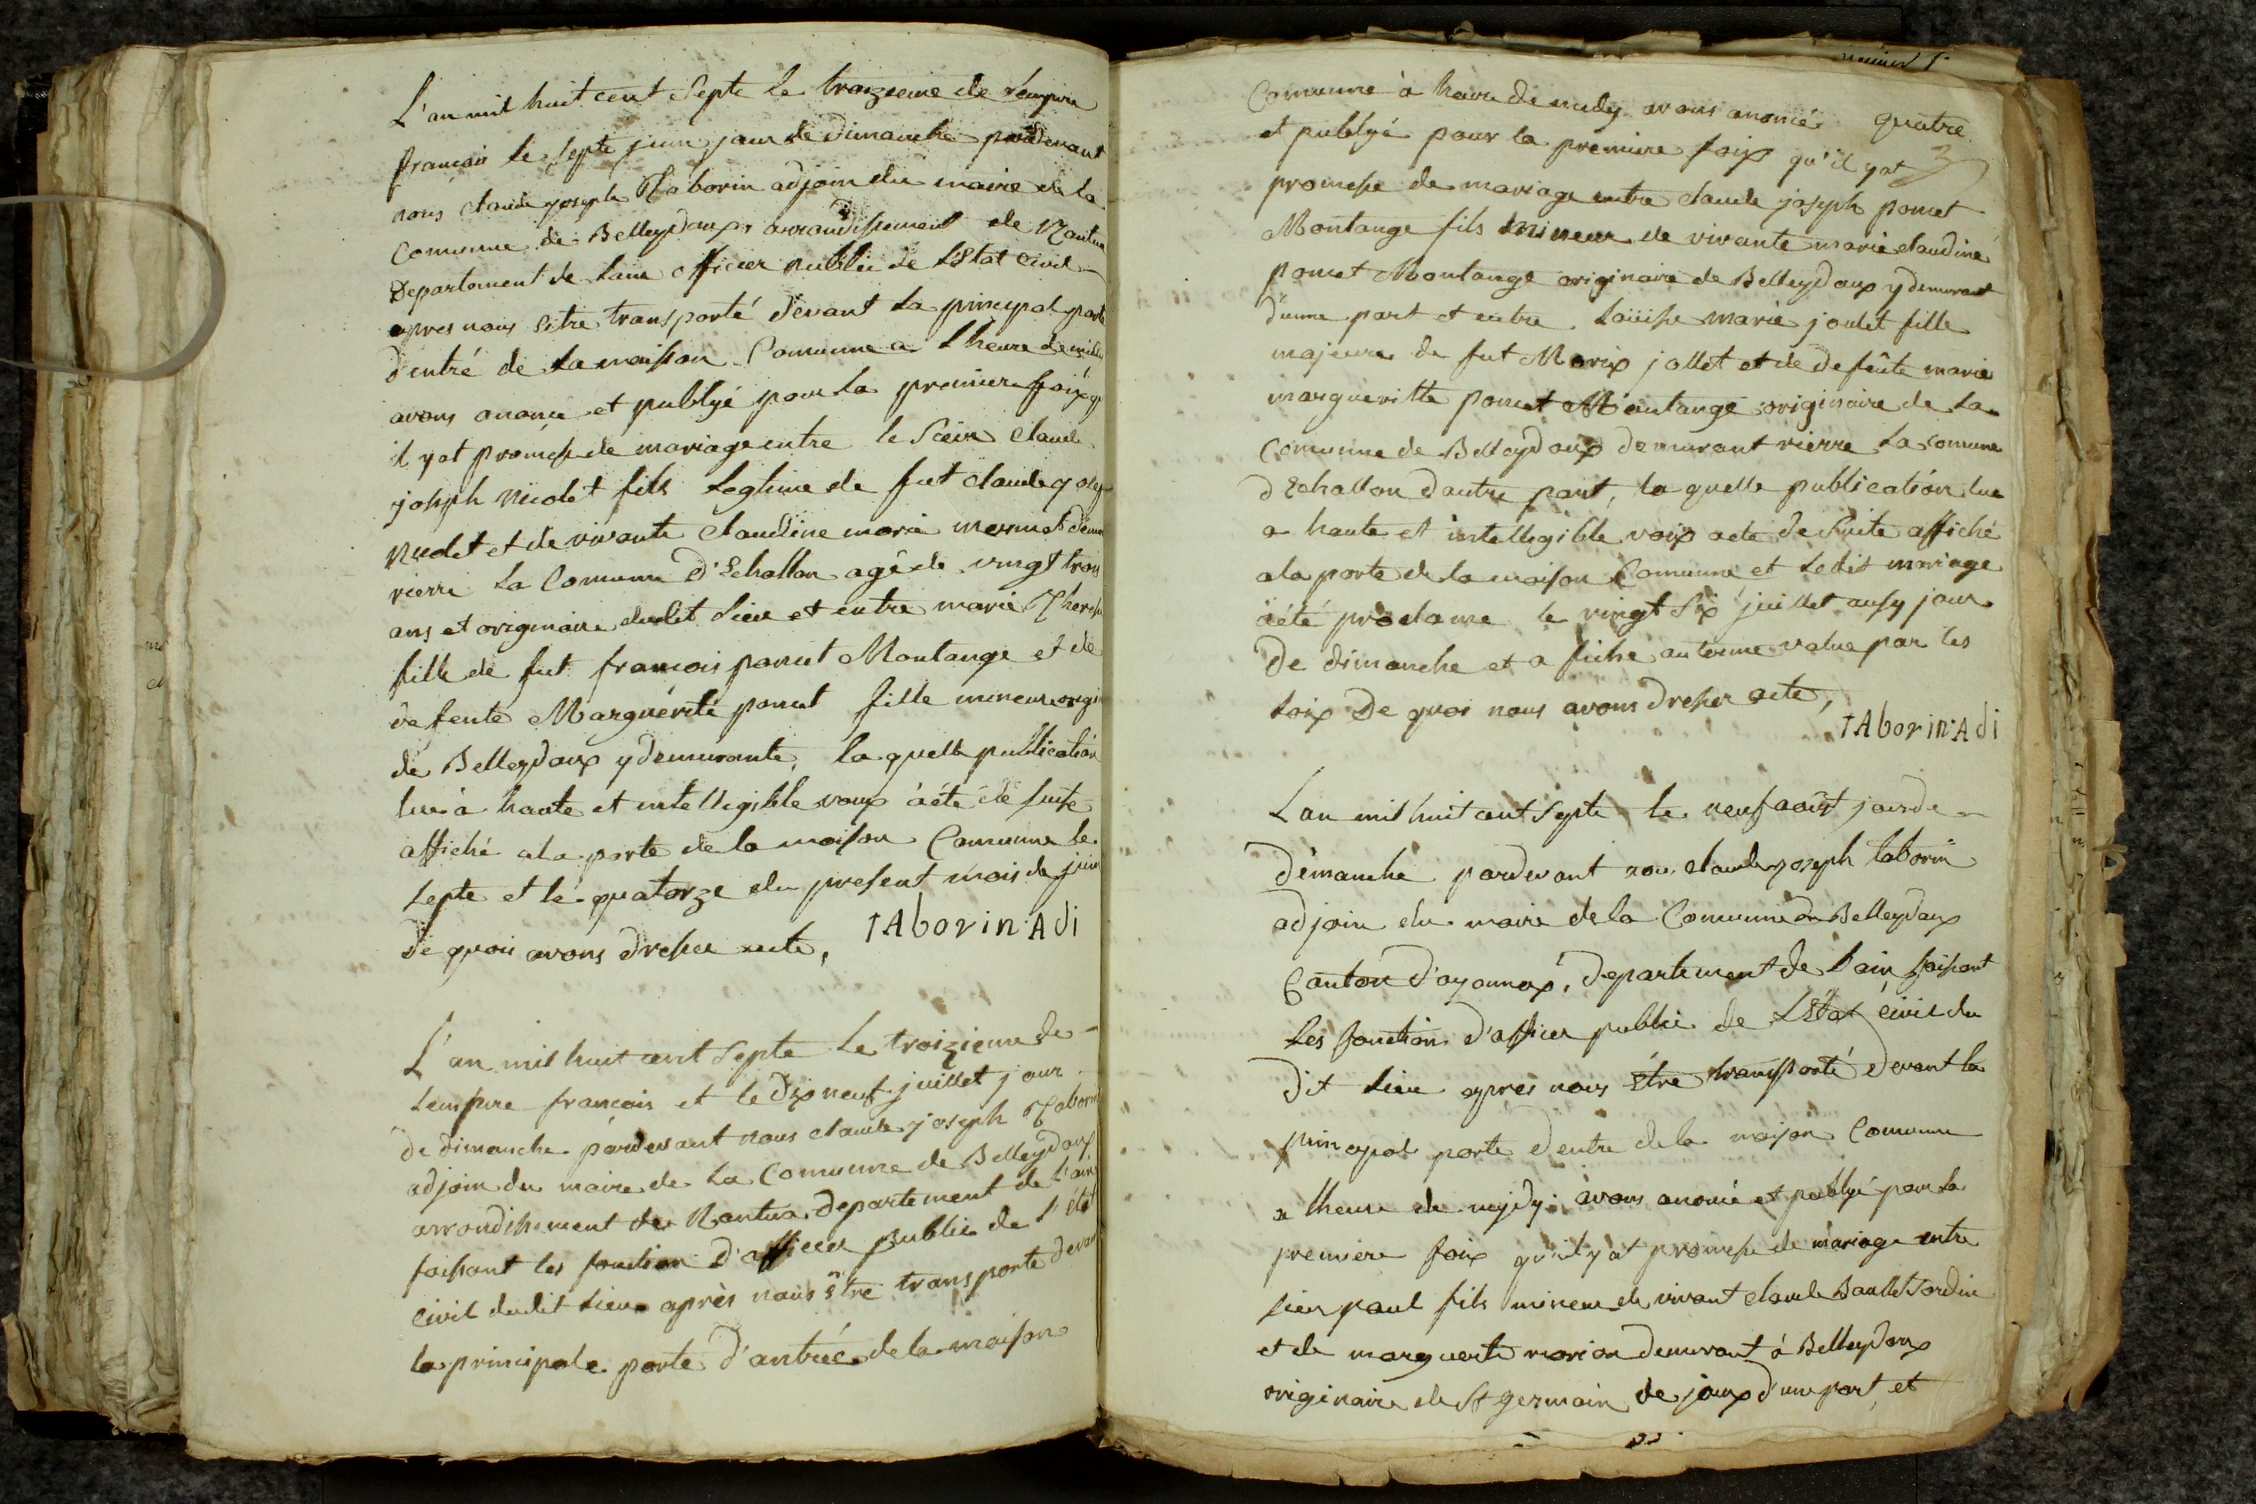 L'an mil huit cent septe le troizieme de l'empire
francais le septe juin jour de dimanche pardevant
nous claude joseph Taborin adjoin du maire de la
Comunne de Belleydoux arrondissement de Nantua
Departement de Lain officier public de L'Etat Civil
apres nous estre transporté devant la principal porte
d'entré de la maison Comunne a l'heure de midi
avons anoncé et publyé pour la premier foix q
il y at promesse de mariage entre le sieur claude
joseph nicolet fils legtime de fut claude joseph
nicolet et de vivante Claudine marie mermet demu
rierre la Comunne d'Echallon agé de vingt trois
ans et originaire dudit lieu et entre marie Therese
fille de fut francois poncet Montange et de
defente Marguérite poncet fille mineure origi
de Belleydoux y demurante, la quelle publication
lue à haute et intelligible voix àété de suite
affiché a la porte de la maison Comunne le
septe et le quatorze du present mois de juin
de quoi avons dresser acte,
TAborin: Adi
L'an mil huit cent septe le troizieme de
lempire francais et le dix neuf juillet jour
de dimanche pardevant nous claude joseph Taborin
adjoin du maire de la Comunne de Belleydoux
arrondissement de Nantua departement de l'ain
faissant les fonction d'officier public de l'état
civil dudit lieu après nous être transporté devant
la principale porte d'antrée de la maison
quatre
3
Comunne à heure de midy avons anoncé
et publyé pour la premiere foix qu'il y at
promesse de mariage entre claude joseph poncet
Montange fils mineur de vivante marie claudine
poncet Montange originaire de Belleydoux y demurant
d'unne part et entre Louise marie joulet fille
majeure de fut Marix jollet et de defeute marie
marguerite poncet Montange originaire de la
Comunne de Belleydoux demurant rierre la comune
d'Echallon d'autre part, la quelle publication lue
a haute et intellegible voix aete de suite affiché
a la porte de la maison Comunne et ledit mariage
aété proclame le vingt six juillet aussy jour
de dimanche et a fiché au terme value par les
loix De quoi nous avons dresser acte,
TAborin: Adi
L'an mil huit cent septe le neuf août jour de
dimanche pardevant nou claude joseph taborin
adjoin du maire de la Comunne de Belleydoux
Canton d'oyonnax, departement de l'ain faissant
les fonction d'officier public de L'Etat civil du
dit lieu apres nous être transporté devant la
principal porte d'entre de la maison Comunne
a lheure de mijdy avons anoncé et publyé pour la
premiere foix qu'il y at promesse de mariage entre
sieur paul fils mineur de vivant claude Baullet Sordin
et de marguerite marion demurant à Belleydoux
originaire de St germain de joux d'une part, et